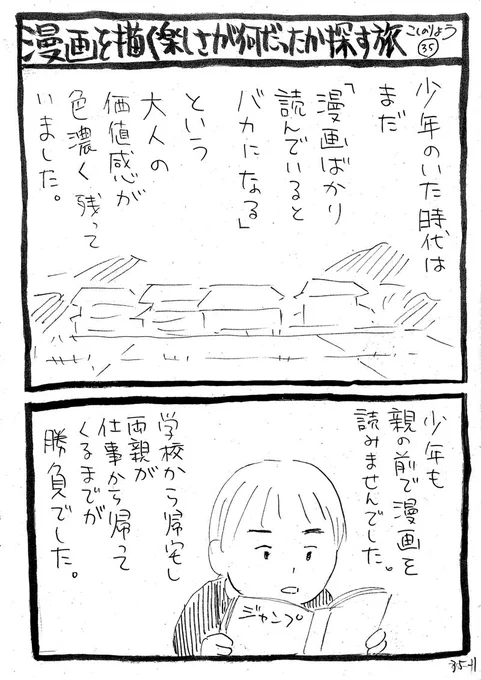 漫画を描く楽しさが何だったか探す旅
こしのりょう
㉟
少年のいた時代は
まだ
「漫画ばかり
読んでいると
バカになる」
という
大人の
価値感が
色濃く残って
いました。
少年も
親の前で漫画を
読みませんでした。
学校から帰宅し
両親が
仕事から帰って
くるまでが
勝負でした。
ジャンプ
35-11